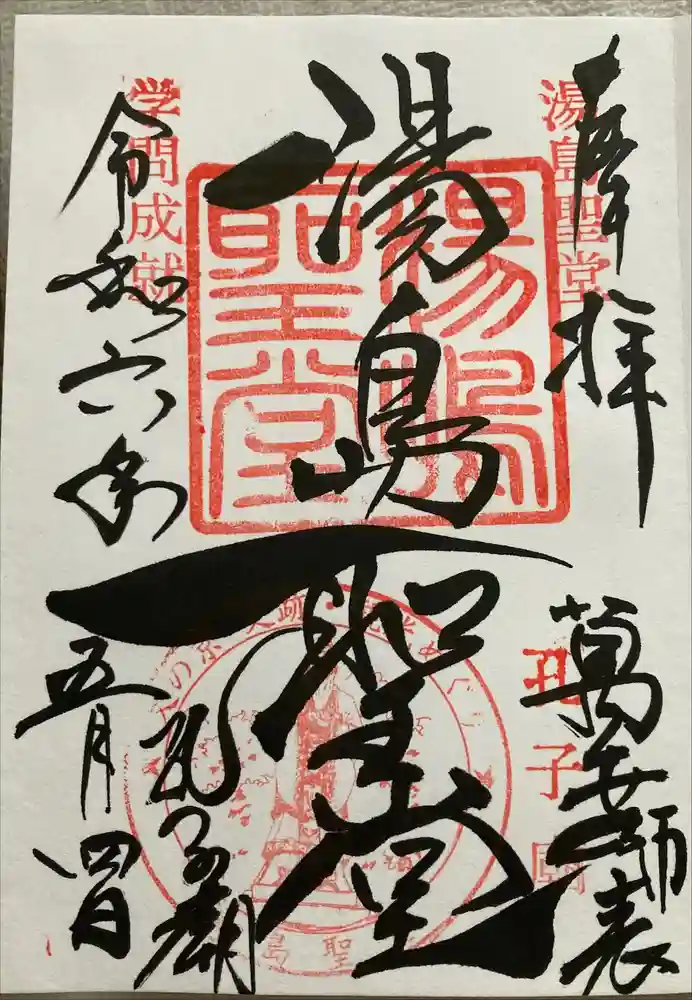 奉拝
湯島聖堂
萬世師表
湯嶋聖堂
湯島聖堂
学問成就
令和六年
五月四日
孔子廟